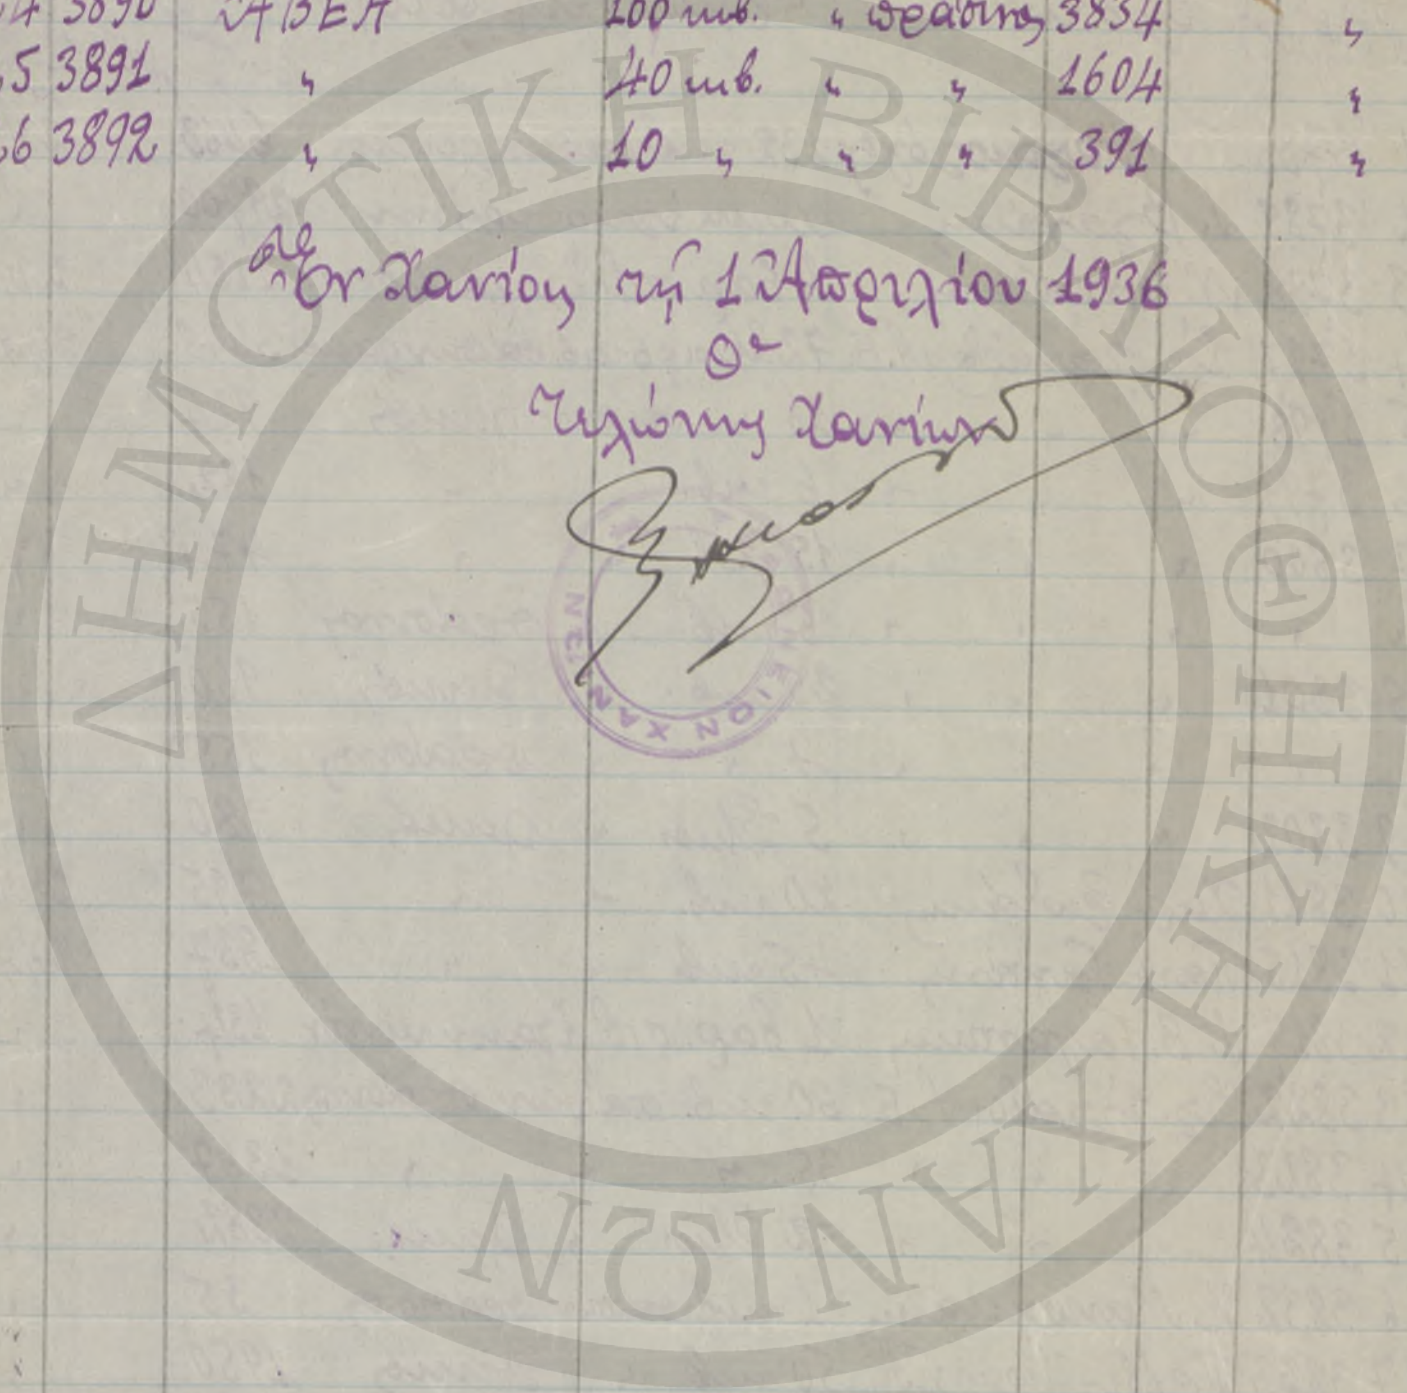 4 3890 ΑΒΕΑ 100 κιβ. " πράσινος 3834 "
5 3891 " 40 κιβ. " " 1604 "
6 3892 " 10 " " " 391 "
Ἐν Χανίοις τῇ 1 Ἀπριλίου 1936
Ὁ
Τελώνης Χανίων
ΧΑΝ
ΔΗΜΟΤΙΚΗ ΒΙΒΛΙΟΘΗΚΗ ΧΑΝΙΩΝ